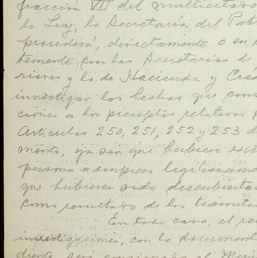 fracción VII del multicitado
la Ley, la Secretaría del Pat
procederá, directamente o en
temente con las Secretarías de
rinas y la de Hacienda y Cré
investigar los hechos que cons
ciones a los preceptos relativos
Artículos 250, 251, 252 y 253 d
mento, ya sea que hubiere
persona o empresa legítimame
que hubieren sido descubiertas
como resultado de los trámites
En todo caso, el
investigaciones, con la document